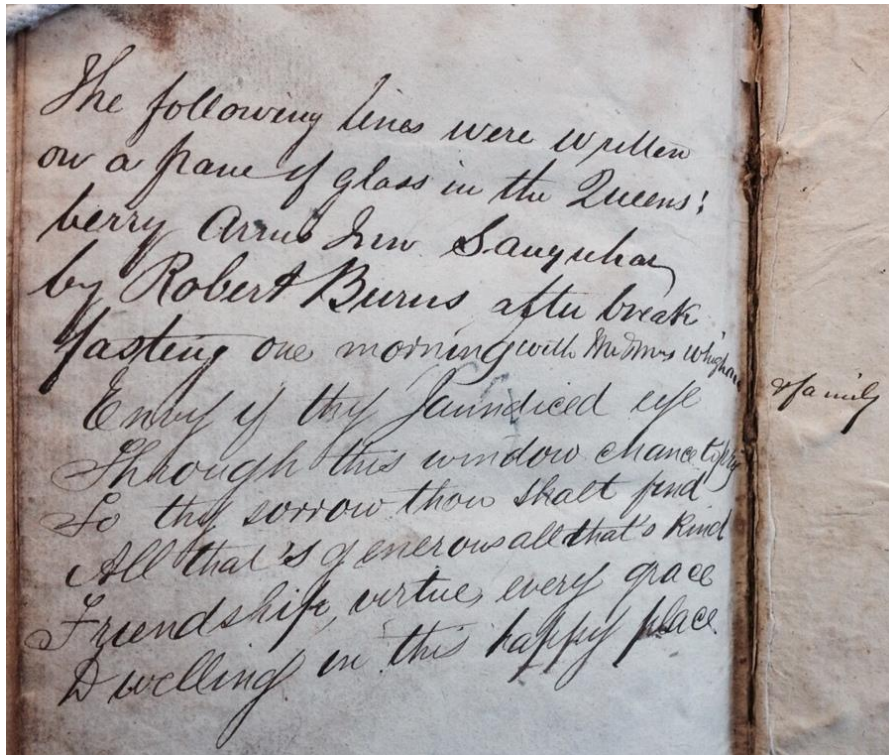 The following lines were written
on a pane of glass in the Queens:
berry Arms Inn Sanquhar
by Robert Burns after break
fasting one morning with Mr Mrs Whigham
& family
Envy if thy Jaundiced eye
Through this window chance to pry
To thy sorrow thou shalt find
All that's generous all that's kind
Friendship, virtue, every grace
Dwelling in this happy place.